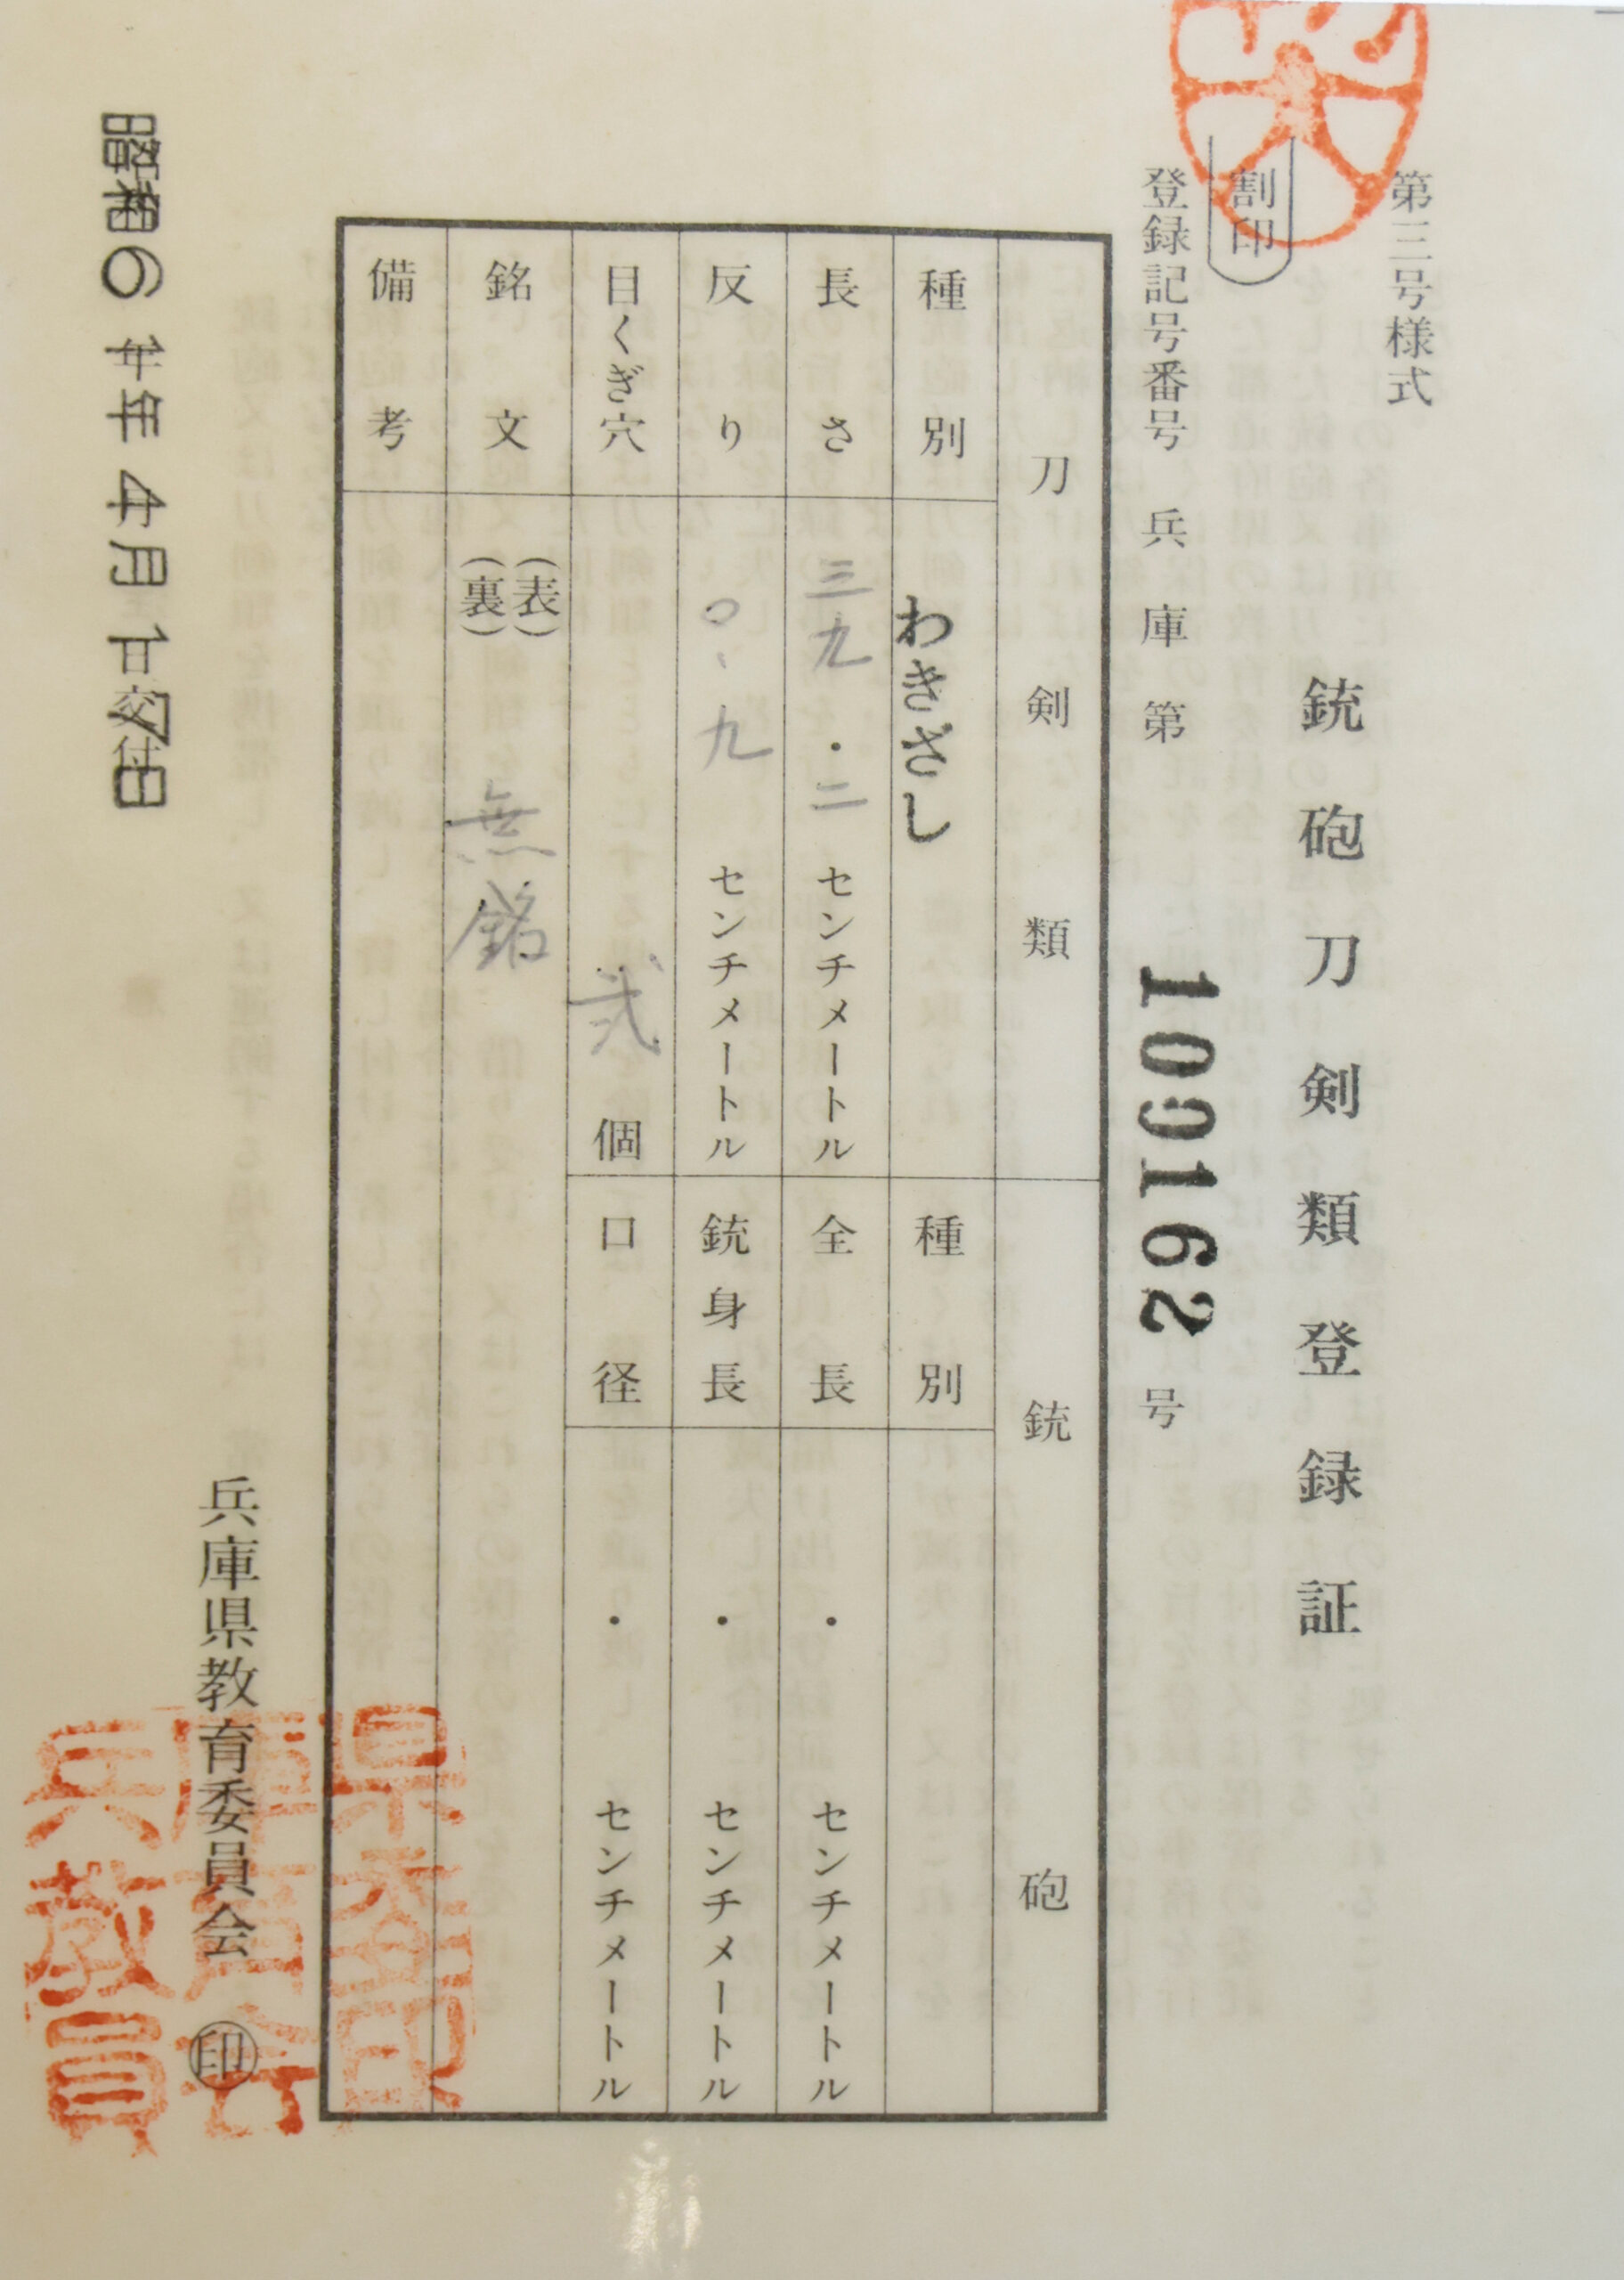 第三号様式
銃砲刀剣類登録証
割印
登録記号番号 兵庫第 109162 号
刀剣類 銃砲
種別 わきざし 種別
長さ 三九・二 センチメートル 全長 ・ センチメートル
反り 〇、九 センチメートル 銃身長 ・ センチメートル
目くぎ穴 弐 個 口径 ・ センチメートル
銘文 (表) (裏) 無銘
備考
兵庫県教育委員会 印
年 4月 日 交付